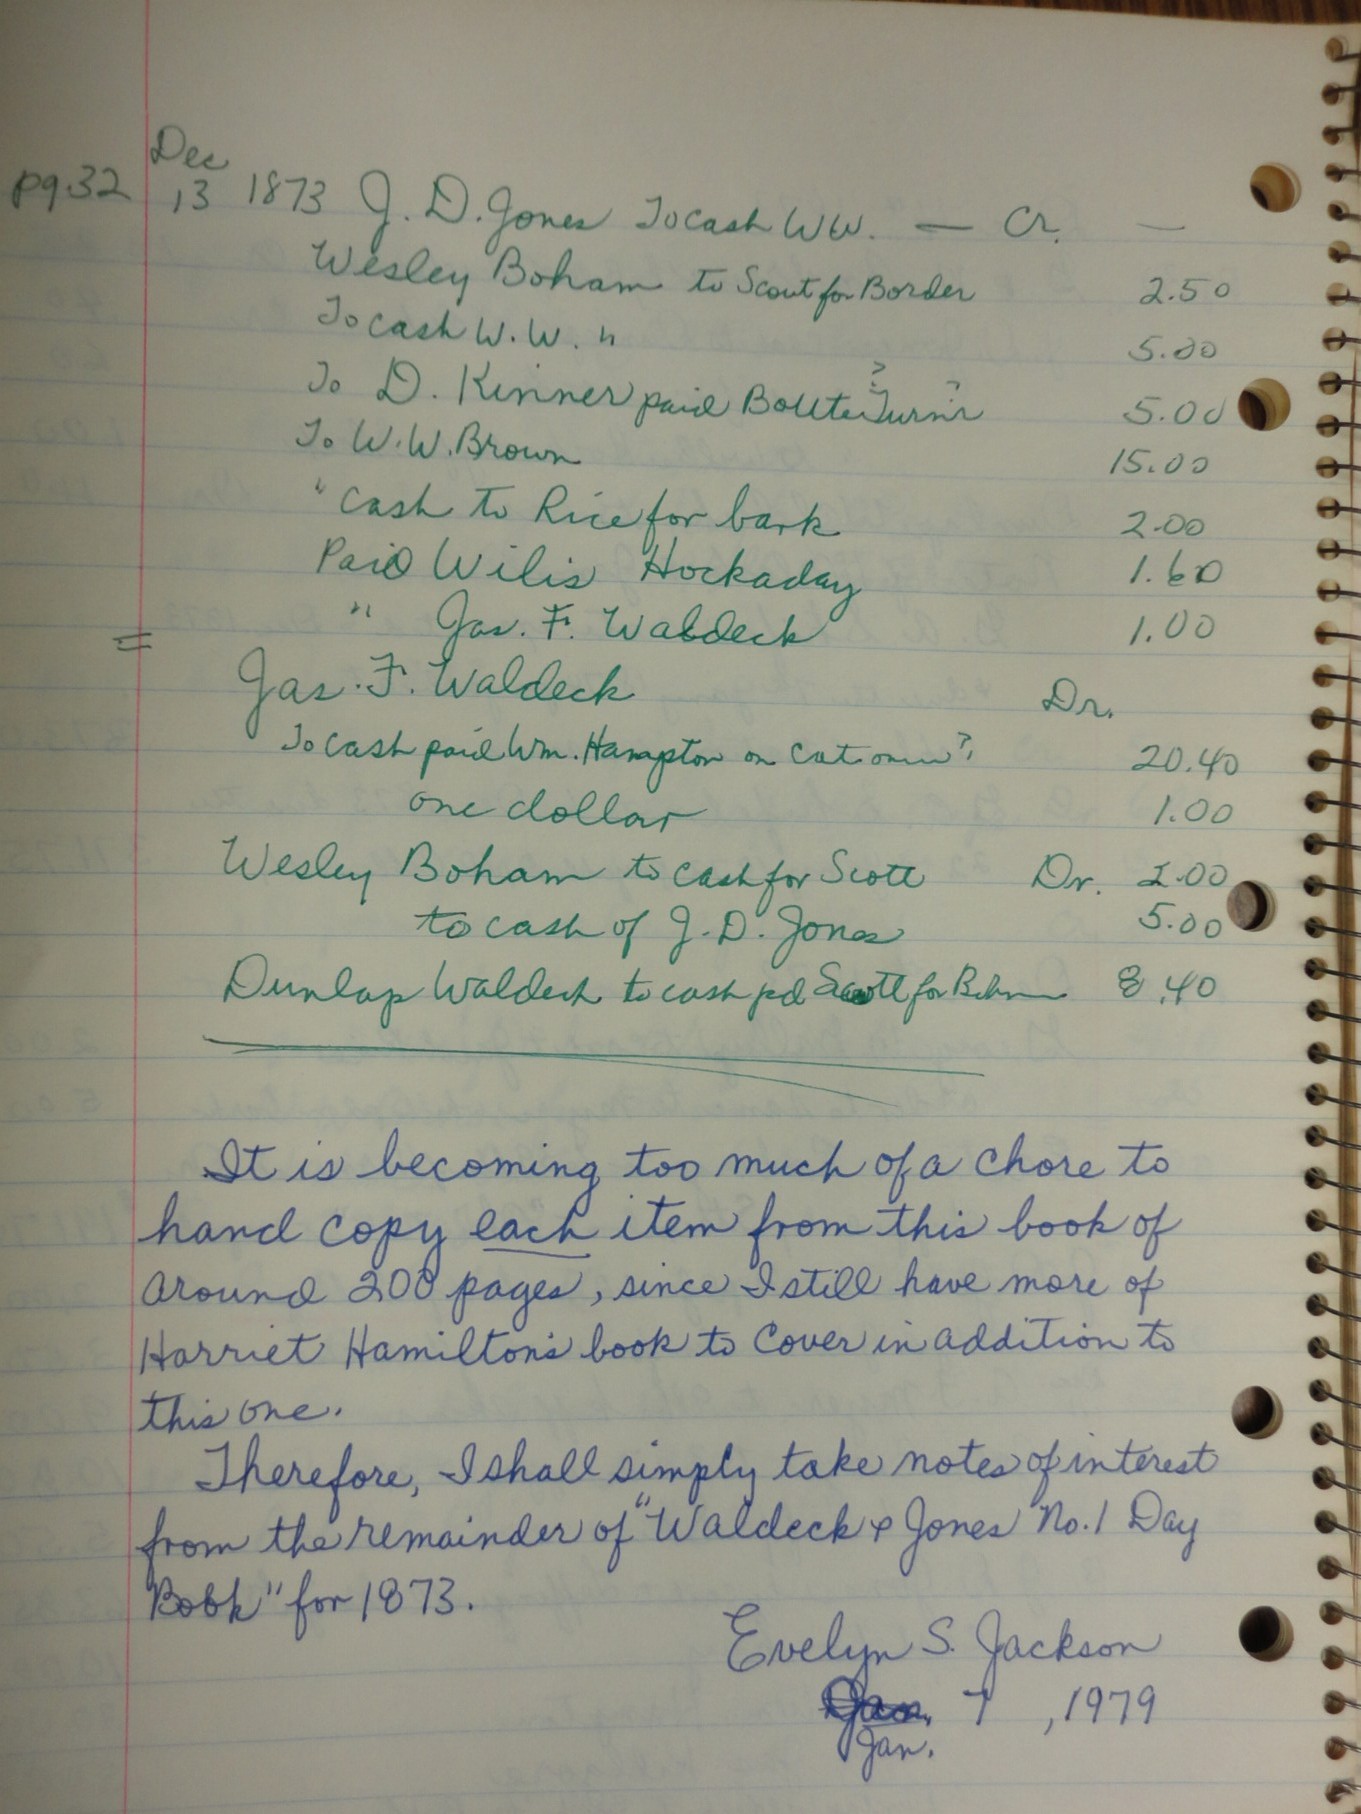 Dec
pg.32 13 1873 J. D. Jones To cash W W. — Cr. —
Wesley Boham to Scout for Border 2.50
To cash W. W. " 5.00
To D. Kinner paid ? ? 5.00
To W. W. Brown 15.00
" Cash to Rice for bark 2.00
Paid Wilis Hockaday 1.60
" Jas. F. Waldeck 1.00
=
Jas. F. Waldeck Dr.
To cash paid Wm. Hampton on ? 20.40
one dollar 1.00
Wesley Boham to cash for Scott Dr. 2.00
to cash of J. D. Jones 5.00
Dunlap Waldeck to cash pd Scott for 8.40
It is becoming too much of a chore to
hand copy each item from this book of
around 200 pages, since I still have more of
Harriet Hamilton's book to cover in addition to
this one.
Therefore, I shall simply take notes of interest
from the remainder of "Waldeck & Jones No. 1 Day
Book" for 1873.
Evelyn S. Jackson
7, 1979
Jan.